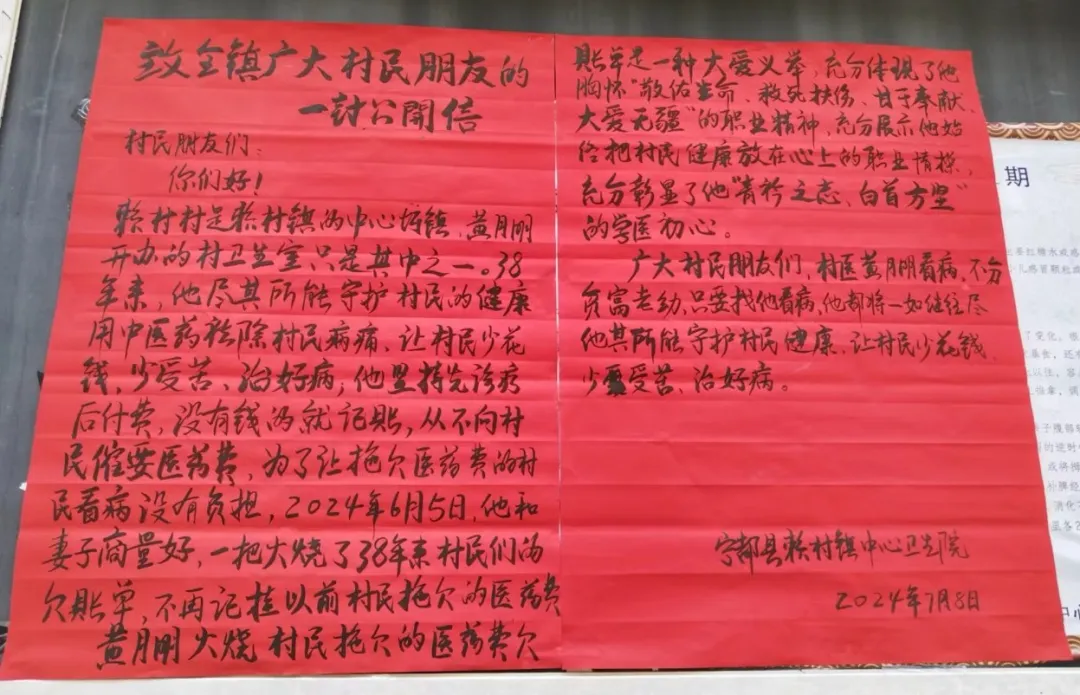 致全镇广大村民朋友的
一封公開信
村民朋友们：
你们好！
赖村村是赖村镇的中心圩镇，黄月朋
开办的村卫生室只是其中之一。38
年来，他尽其所能守护村民的健康
用中医药祛除村民病痛、让村民少花
钱、少受苦、治好病；他坚持先诊疗
后付费，没有钱的就记账，从不向村
民催要医药费，为了让拖欠医药费的村
民看病没有负担，2024年6月5日，他和
妻子商量好，一把火烧了38年来村民们的
欠账单，不再记挂以前村民拖欠的医药费
黄月朋火烧村民拖欠的医药费欠
账单是一种大爱义举，充分体现了他
胸怀“敬佑生命、救死扶伤、甘于奉献、
大爱无疆”的职业精神，充分展示他始
终把村民健康放在心上的职业情操，
充分彰显了他“青衿之志、白首方坚”
的学医初心。
广大村民朋友们，村医黄月朋看病，不分
贫富老幼，只要找他看病，他都将一如继往尽
他其所能守护村民健康、让村民少花钱、
少受苦、治好病。
宁都县赖村镇中心卫生院
2024年7月8日
期